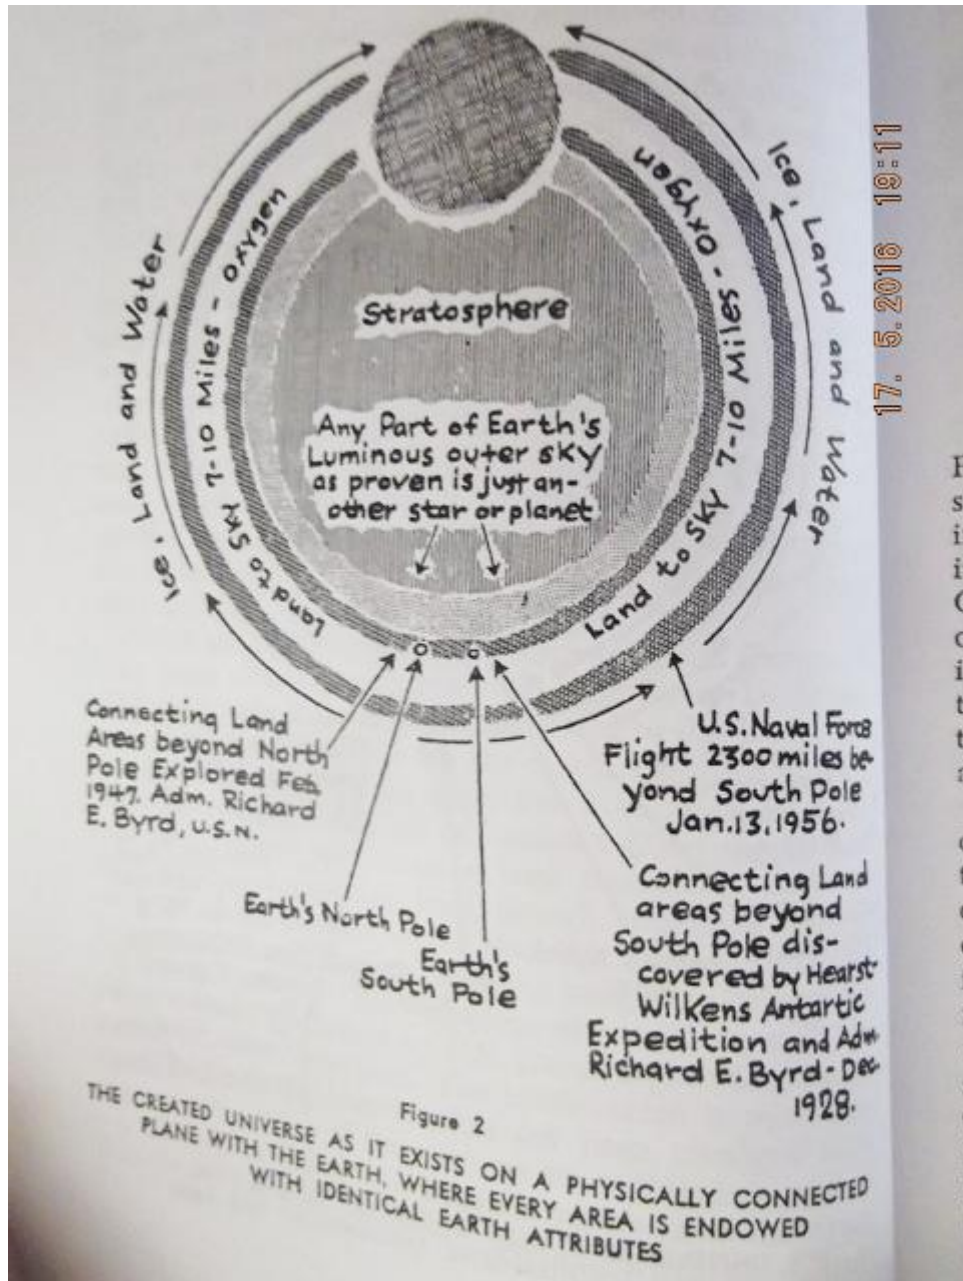 17. 5.2016 19:11
Ice, Land and Water
Ice, Land and Water
Land to Sky 7-10 Miles - Oxygen
Land to Sky 7-10 Miles - Oxygen
Stratosphere
Any Part of Earth's
Luminous outer sky
as proven is just an-
other star or planet
Connecting Land
Areas beyond North
Pole Explored Feb.
1947. Adm. Richard
E. Byrd, U.S.N.
Earth's North Pole
Earth's
South Pole
U.S. Naval Force
Flight 2300 miles be-
yond South Pole
Jan. 13, 1956.
Connecting Land
areas beyond
South Pole dis-
covered by Hearst-
Wilkens Antartic
Expedition and Adm.
Richard E. Byrd - Dec.
1928.
Figure 2
THE CREATED UNIVERSE AS IT EXISTS ON A PHYSICALLY CONNECTED
PLANE WITH THE EARTH, WHERE EVERY AREA IS ENDOWED
WITH IDENTICAL EARTH ATTRIBUTES